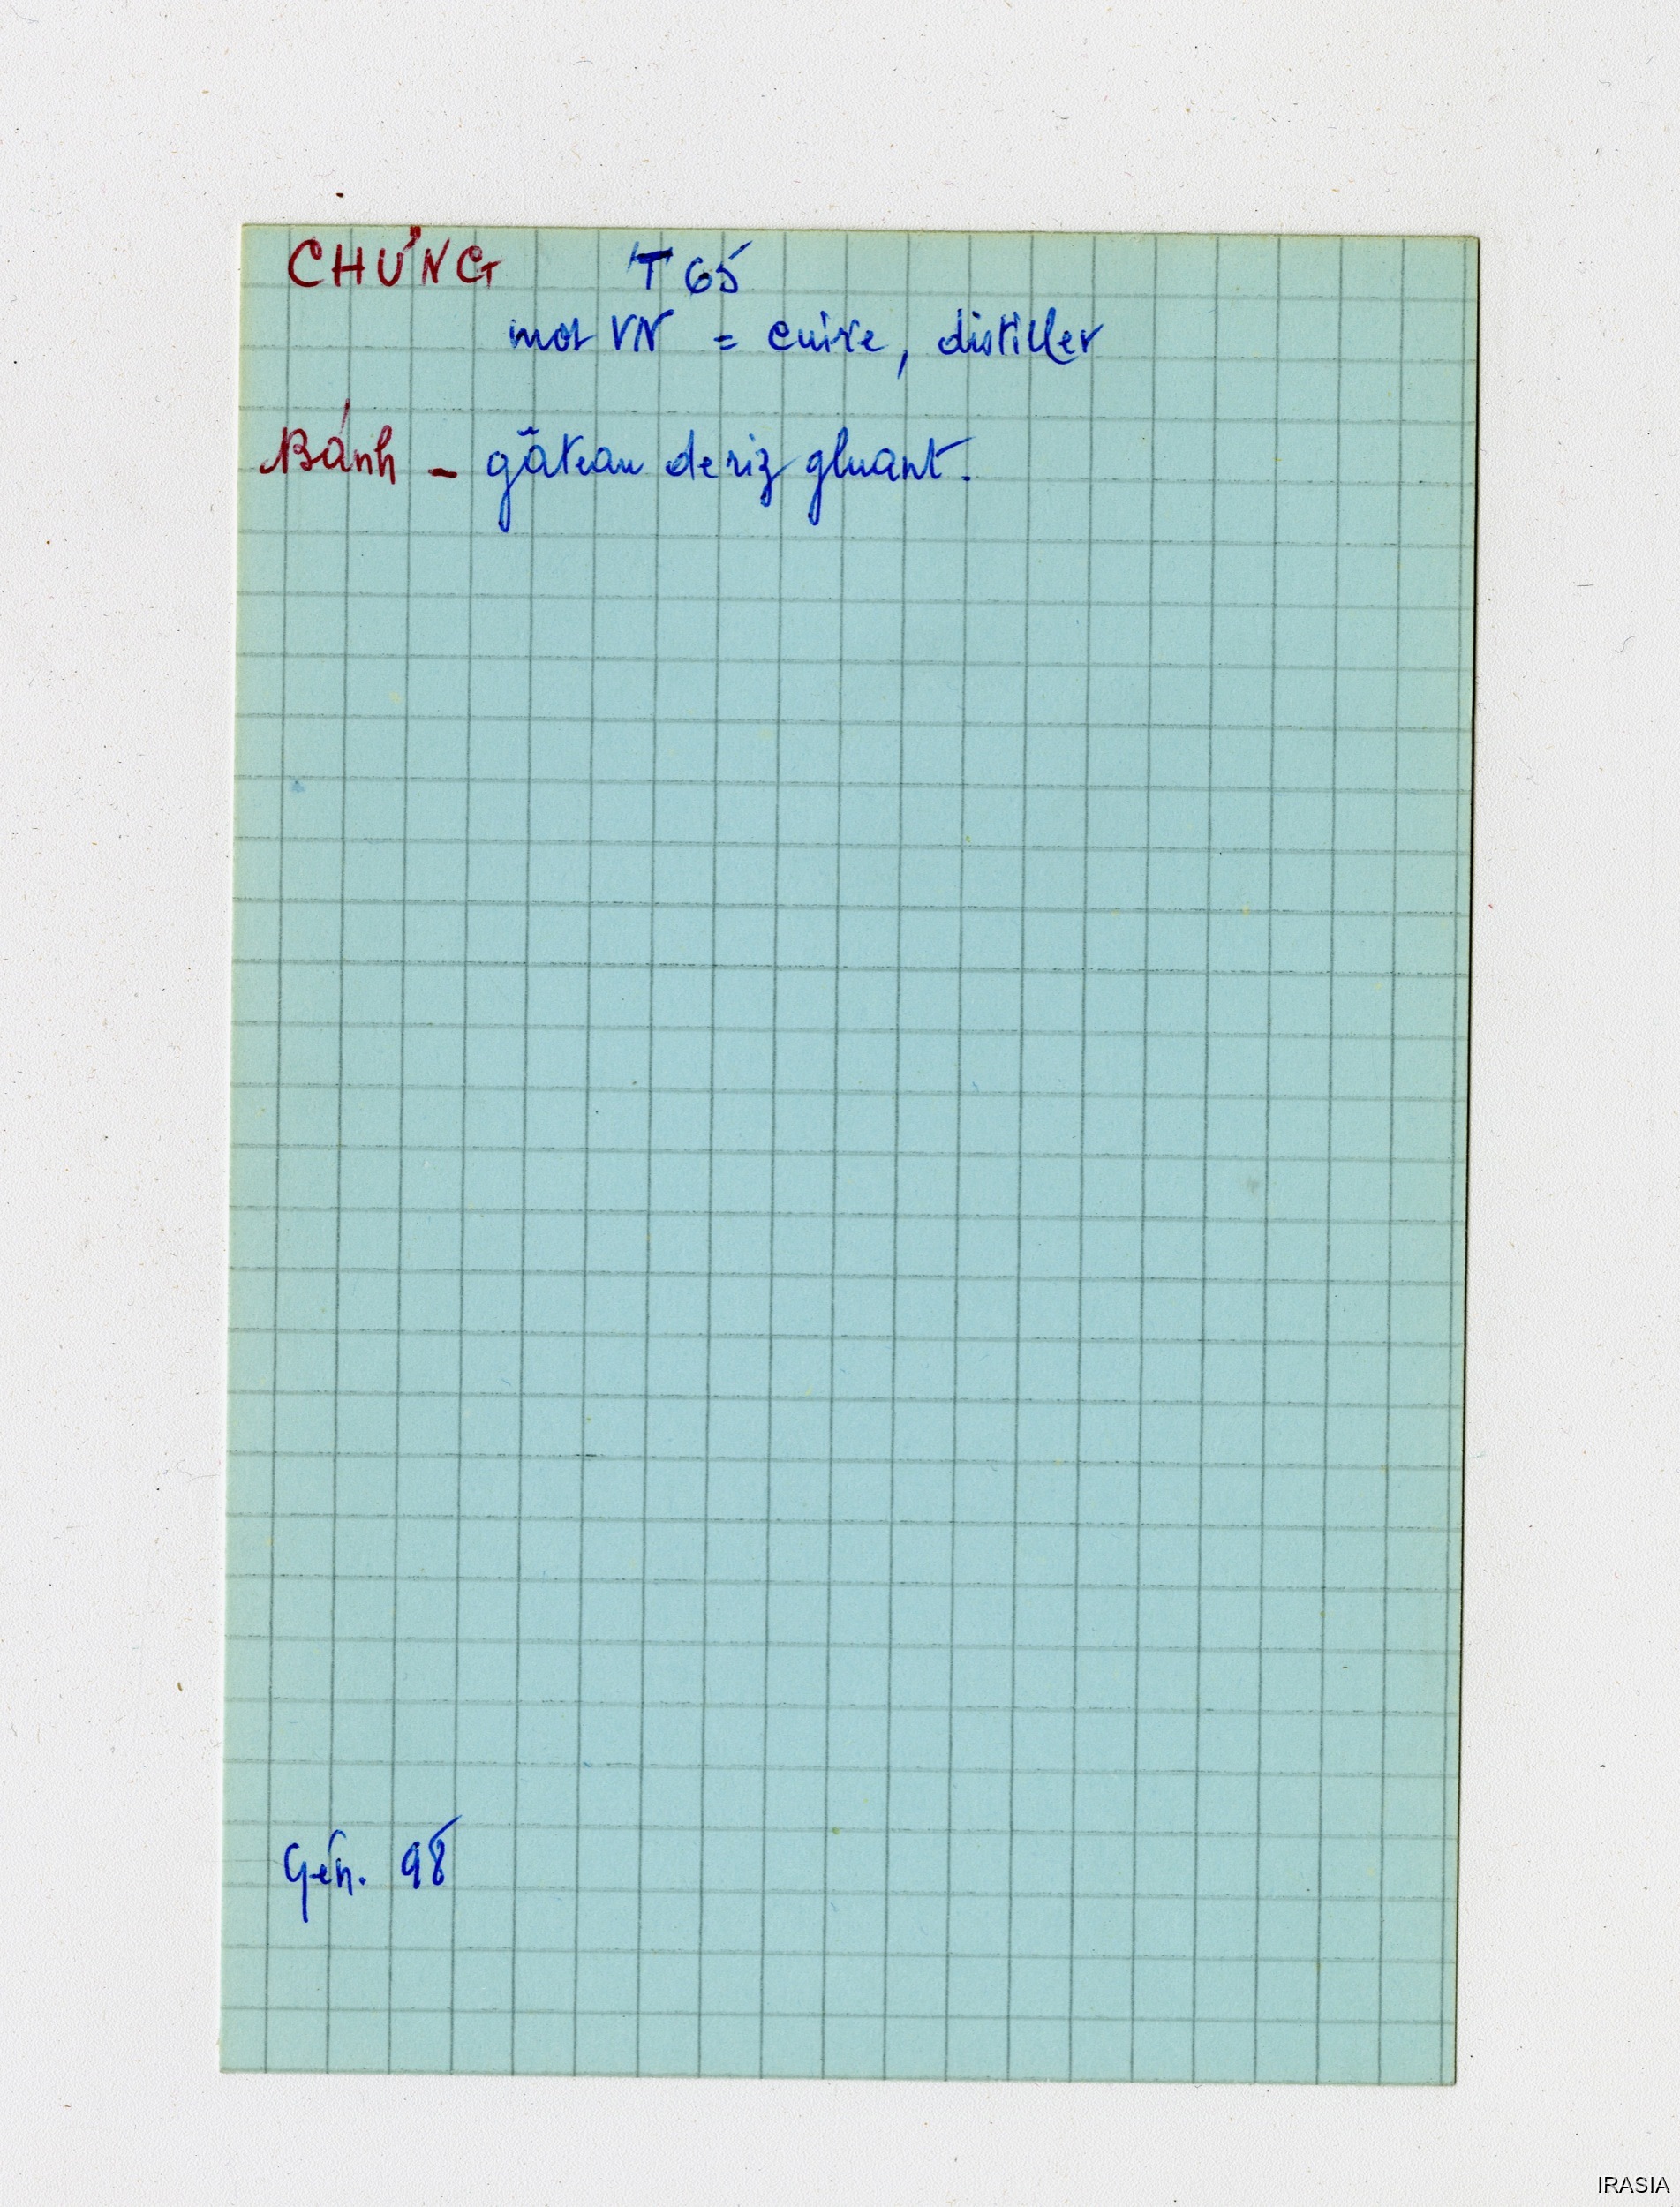 CHƯNG T 65
mot VN = cuire, distiller
Bánh - gâteau de riz gluant.
Gén. 98
IRASIA